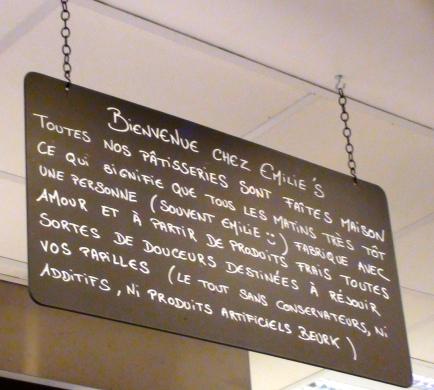 BIENVENUE CHEZ EMILIE'S
TOUTES NOS PÂTISSERIES SONT FAITES MAISON
CE QUI SIGNIFIE QUE TOUS LES MATINS TRÈS TÔT
UNE PERSONNE (SOUVENT EMILIE :) ) FABRIQUE AVEC
AMOUR ET À PARTIR DE PRODUITS FRAIS TOUTES
SORTES DE DOUCEURS DESTINÉES À RÉJOUIR
VOS PAPILLES (LE TOUT SANS CONSERVATEURS, NI
ADDITIFS, NI PRODUITS ARTIFICIELS BEURK)